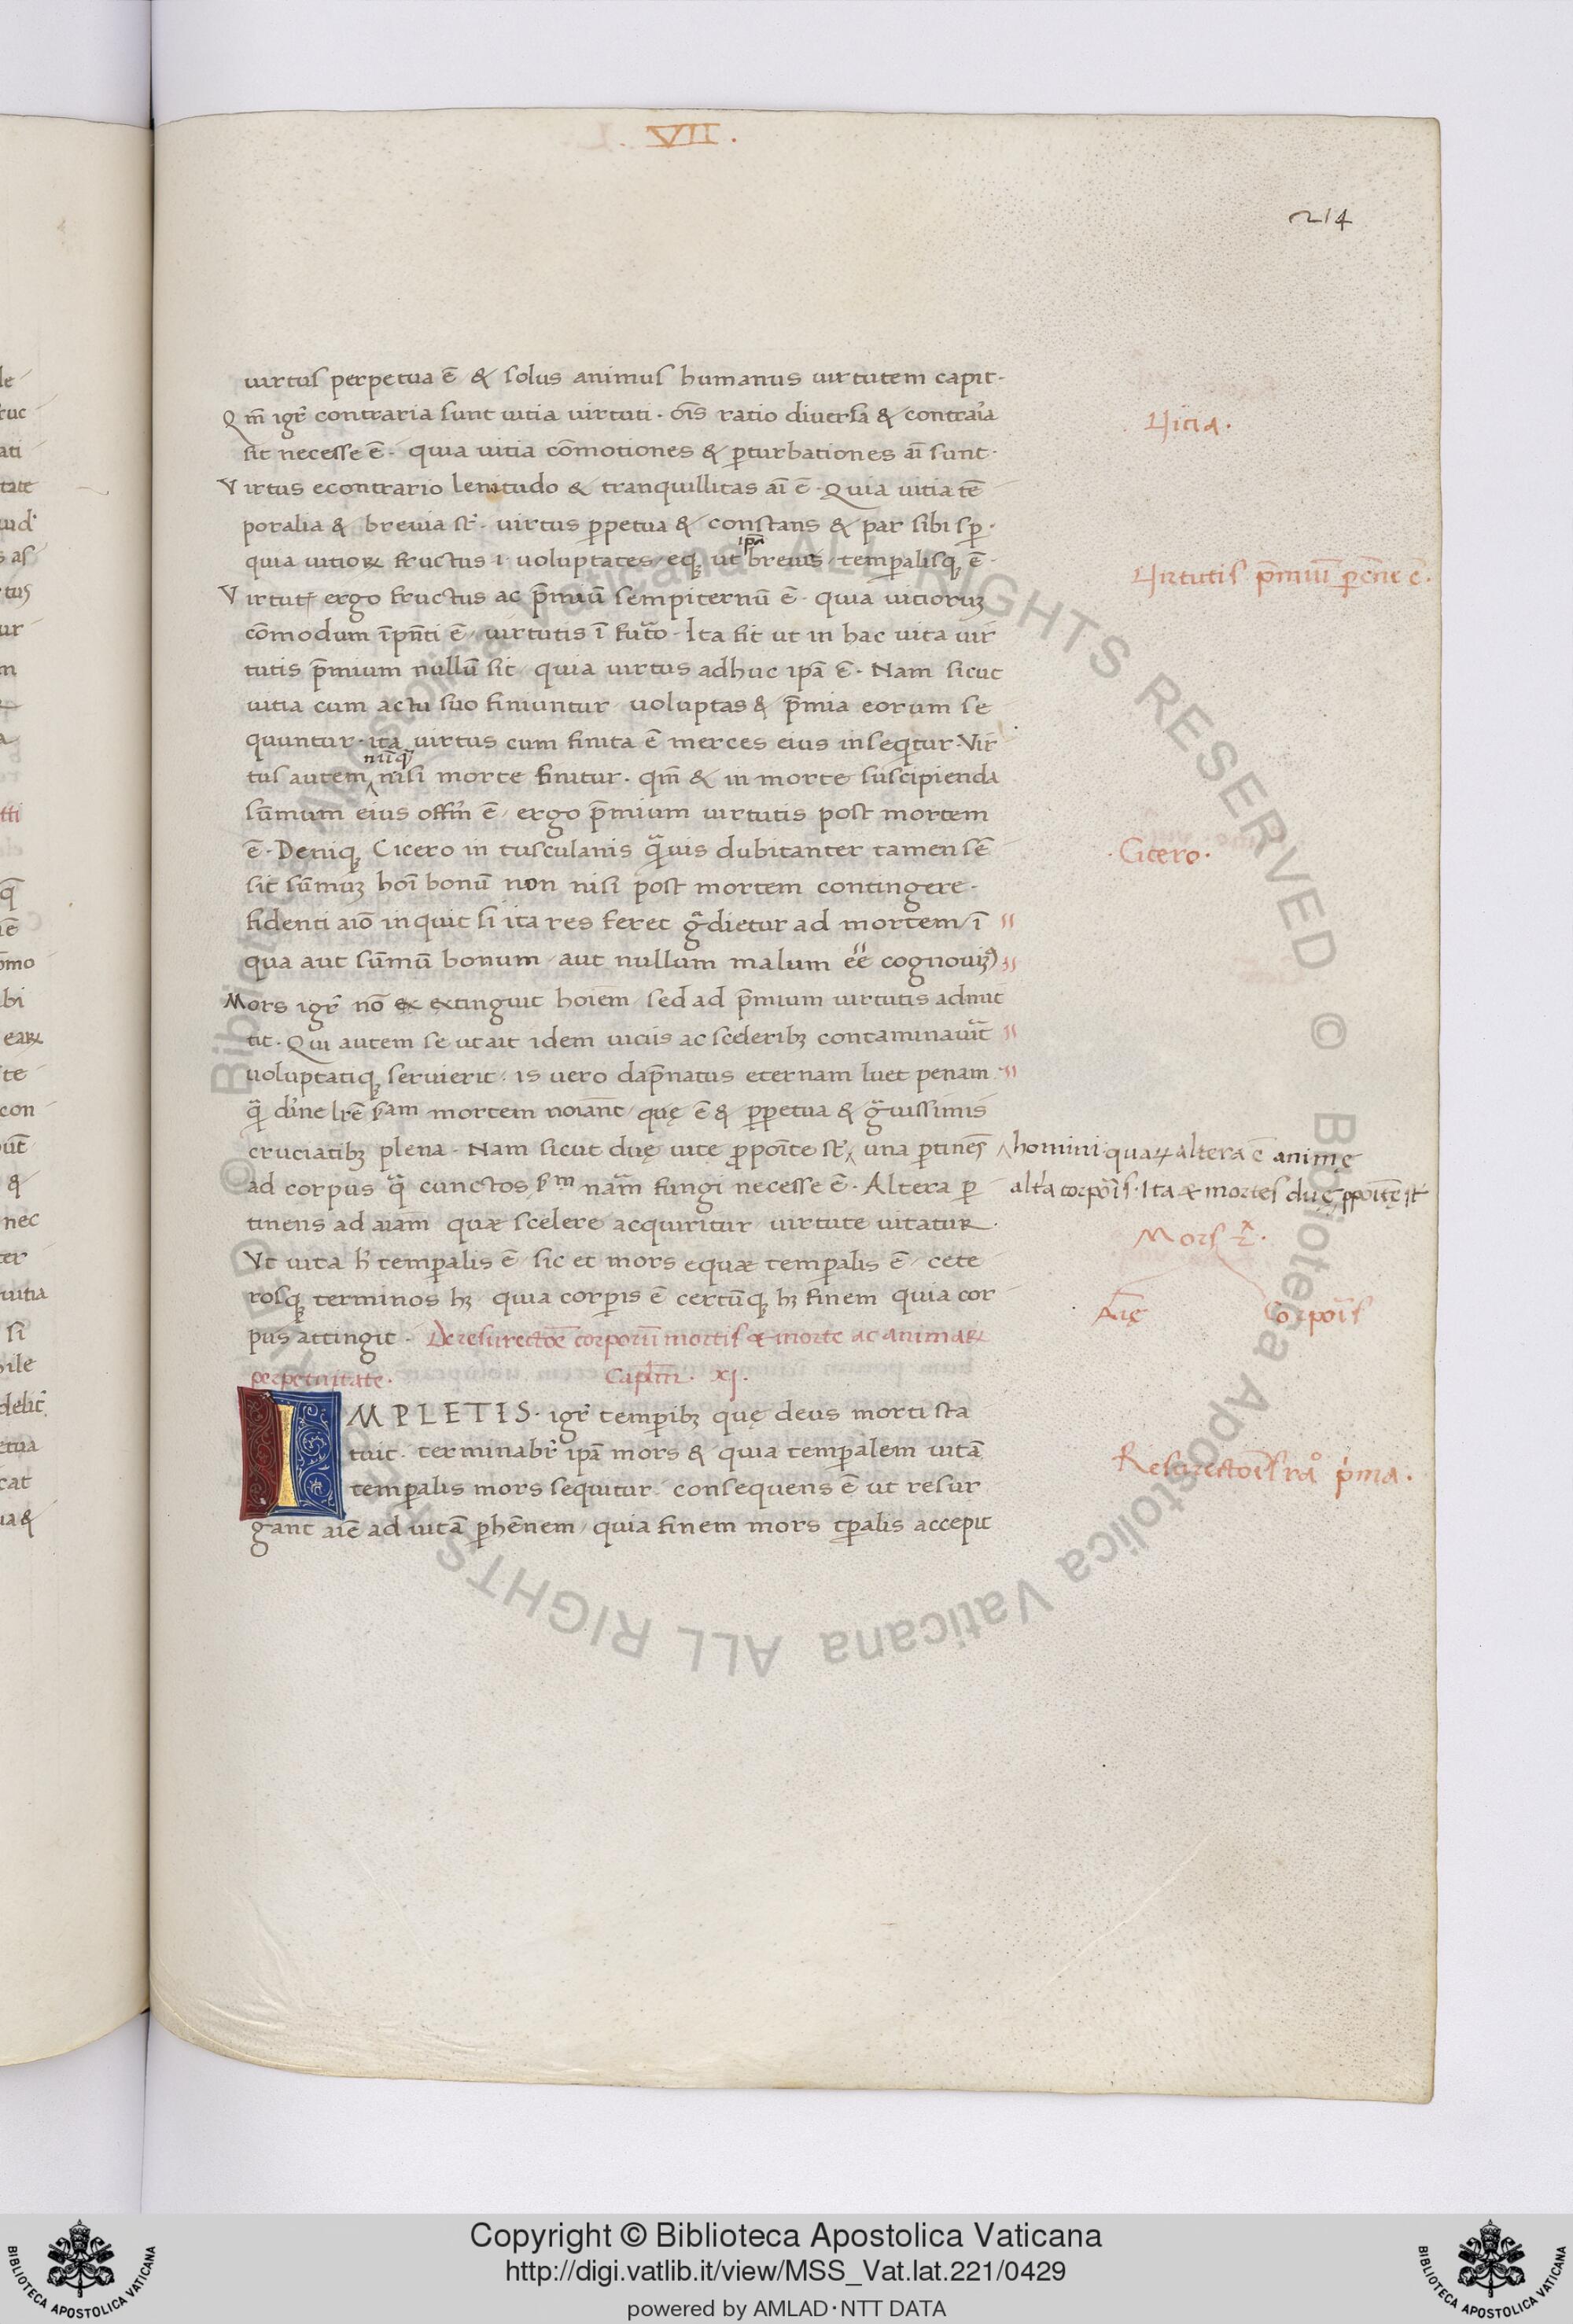 . VII .
214
uirtus perpetua ē & solus animus humanus uirtutem capit·
Qm̄ igr̄ contraria sunt uitia uirtuti · oīs ratio diuersa & contrar̄ia
sit necesse ē · quia uitia cōmotiones & ꝑturbationes aī sunt·
Virtus econtrario lenitudo & tranquillitas aī ē · Quia uitia tē
poralia & breuia st̄ · uirtus ꝑpetua & constans & par sibi sꝑ ·
quia uitioꝝ fructus i· uoluptates / eqꝫ ut ip̄a breuis / temꝑalisqꝫ ē ·
Virtut ergo fructus ac p̄miū sempiternū ē · quia uitioruꝫ
cōmodum īpn̄ti ē / uirtutis ī futo · Ita fit ut in hac uita uir
tutis p̄mium nullū sit / quia uirtus adhuc ipā ē · Nam sicut
uitia cum actu suo finiuntur uoluptas & p̄mia eorum se
quuntur · ita uirtus cum finita ē merces eius inseqtur · Vir
tus autem nūqꝫ nisi morte finitur · qm̄ & in morte suscipienda
sūmum eius offm̄ ē / ergo p̄mium uirtutis post mortem
ē · Deniqꝫ Cicero in tusculanis quis dubitanter tamen sē
sit sūmuꝫ hoī bonū non nisi post mortem contingere ·
fidenti aīo inquit si ita res feret gdietur ad mortem / ī
qua aut sūmū bonum / aut nullum malum eē cognouiꝫ
Mors igr̄ nō ex extinguit hoiem / sed ad p̄mium uirtutis admit
tit · Qui autem se ut ait idem uiciis ac sceleribꝫ contaminauit
uoluptatiqꝫ seruierit · is uero dāpnatus eternam luet penam
q diīne lr̄e sam mortem noīant / quę ē & ꝑpetua & guissimis
cruciatibꝫ plena · Nam sicut duę uite ꝓpoīte st̄ / una ꝑtinēs
ad corpus q cunctos sm nām fungi necesse ē · Altera ꝑ
tinens ad aīam quæ scelere acquiritur uirtute uitatur ·
Vt uita h̄ temꝑalis ē / sic et mors equæ temꝑalis ē / cete
rosqꝫ terminos hꝫ quia corꝑis ē certūqꝫ hꝫ finem quia cor
pus attingit · De resurectoē corporū mortis & morte ac animaꝝ
perpetuitate · Caplm̄ · xj ·
IMPLETIS · igr̄ temꝑibꝫ quę deus morti sta
tuit · terminabr̄ ipā mors & quia temꝑalem uitā
temꝑalis mors sequitur · consequens ē ut resur
gant aīe ad uitā ꝑhēnem / quia finem mors tꝑalis accepit
Uitia ·
Uirtutis p̄miū ꝑēne ē ·
· Cicero ·
homini · quaꝝ altera ē animę
alta corpoīs · Ita & mortes duę ꝓpoītę st̄
Mors 2ˣ ·
Aīę Corpoīs
Resurectoīs rao pma ·
Copyright © Biblioteca Apostolica Vaticana
http://digi.vatlib.it/view/MSS_Vat.lat.221/0429
powered by AMLAD·NTT DATA